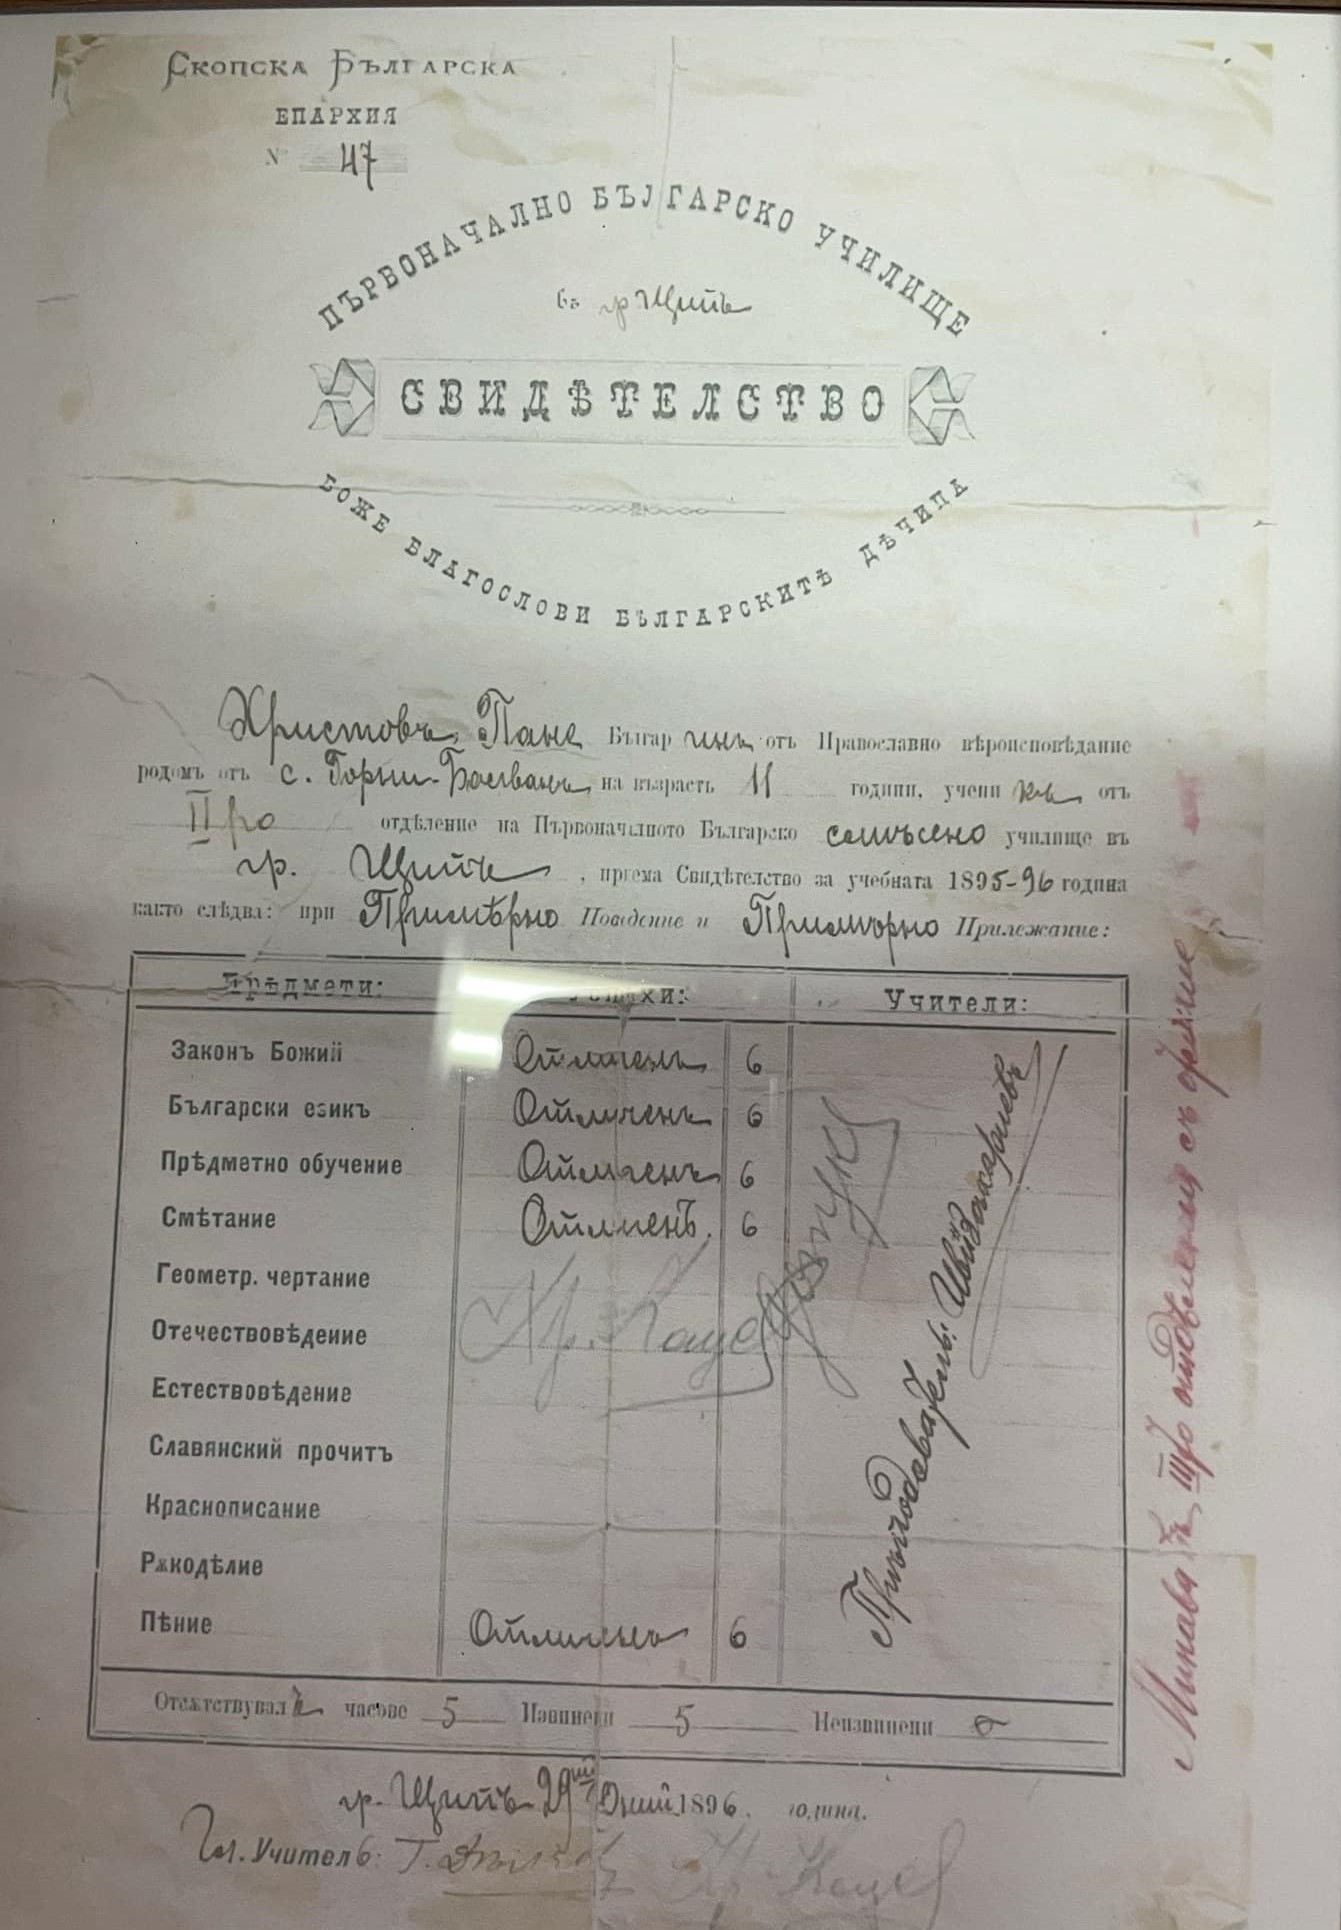 Скопска Българска
ЕПАРХИЯ
№ 47
ПЪРВОНАЧАЛНО БЪЛГАРСКО УЧИЛИЩЕ
въ гр Щипъ
СВИДѢТЕЛСТВО
БОЖЕ БЛАГОСЛОВИ БЪЛГАРСКИТѢ ДѢЧИЦА
Христовъ Пане Българ инъ отъ Православно вѣроисповѣдание
родомъ отъ с. Горни-Балванъ на възрасть 11 години, учени къ отъ
II ро отдѣление на Първоначалното Българско смѣсено училище въ
гр. Щипъ, приема Свидѣтелство за учебната 1895-96 година
както слѣдва: при Примѣрно Поведение и Примѣрно Прилежание:
Прѣдмети: Успѣхи: Учители:
Законъ Божий Отличенъ 6
Български езикъ Отличенъ 6
Прѣдметно обучение Отличенъ 6
Смѣтание Отличенъ. 6
Геометр. чертание
Отечествовѣдение
Естествовѣдение
Славянский прочитъ
Краснописание
Рѫкодѣлие
Пѣние Отличенъ 6
Прѣподаватель:
Отсѫтствувалъ часове 5 Извинени 5 Неизвинени
гр. Щипъ 29 Юний 1896. година.
Гл. Учитель: Т.
Минава въ III то отдѣление съ